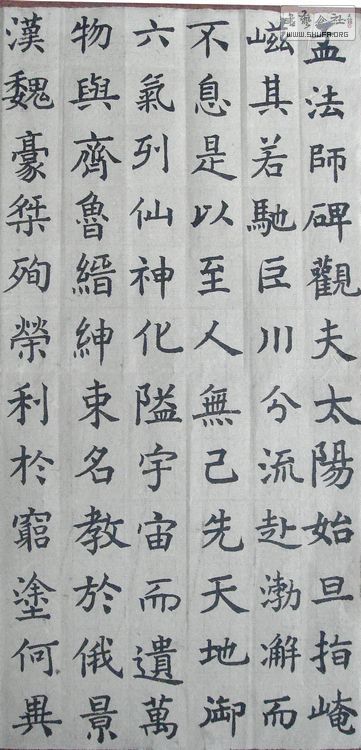 孟法師碑觀夫太陽始旦指崦
嵫其若馳巨川分流赴渤澥而
不息是以至人無己先天地御
六氣列仙神化隘宇宙而遺萬
物與齊魯縉紳束名教於俄景
漢魏豪桀殉榮利於窮塗何異
WWW.SHUFA.ORG